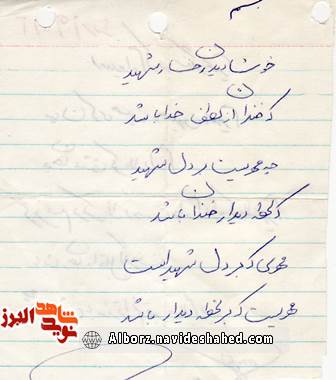 خوشا دیدن رخسار شهید
که خندان از لطف خدا باشد
چه مهریست بر دل شهید
که لحظه دیدار خندان باشد
مهری که بر دل شهید است
مهریست که بر لحظه دیدار باشد
نوید شاهد البرز
Alborz.navideshahed.com